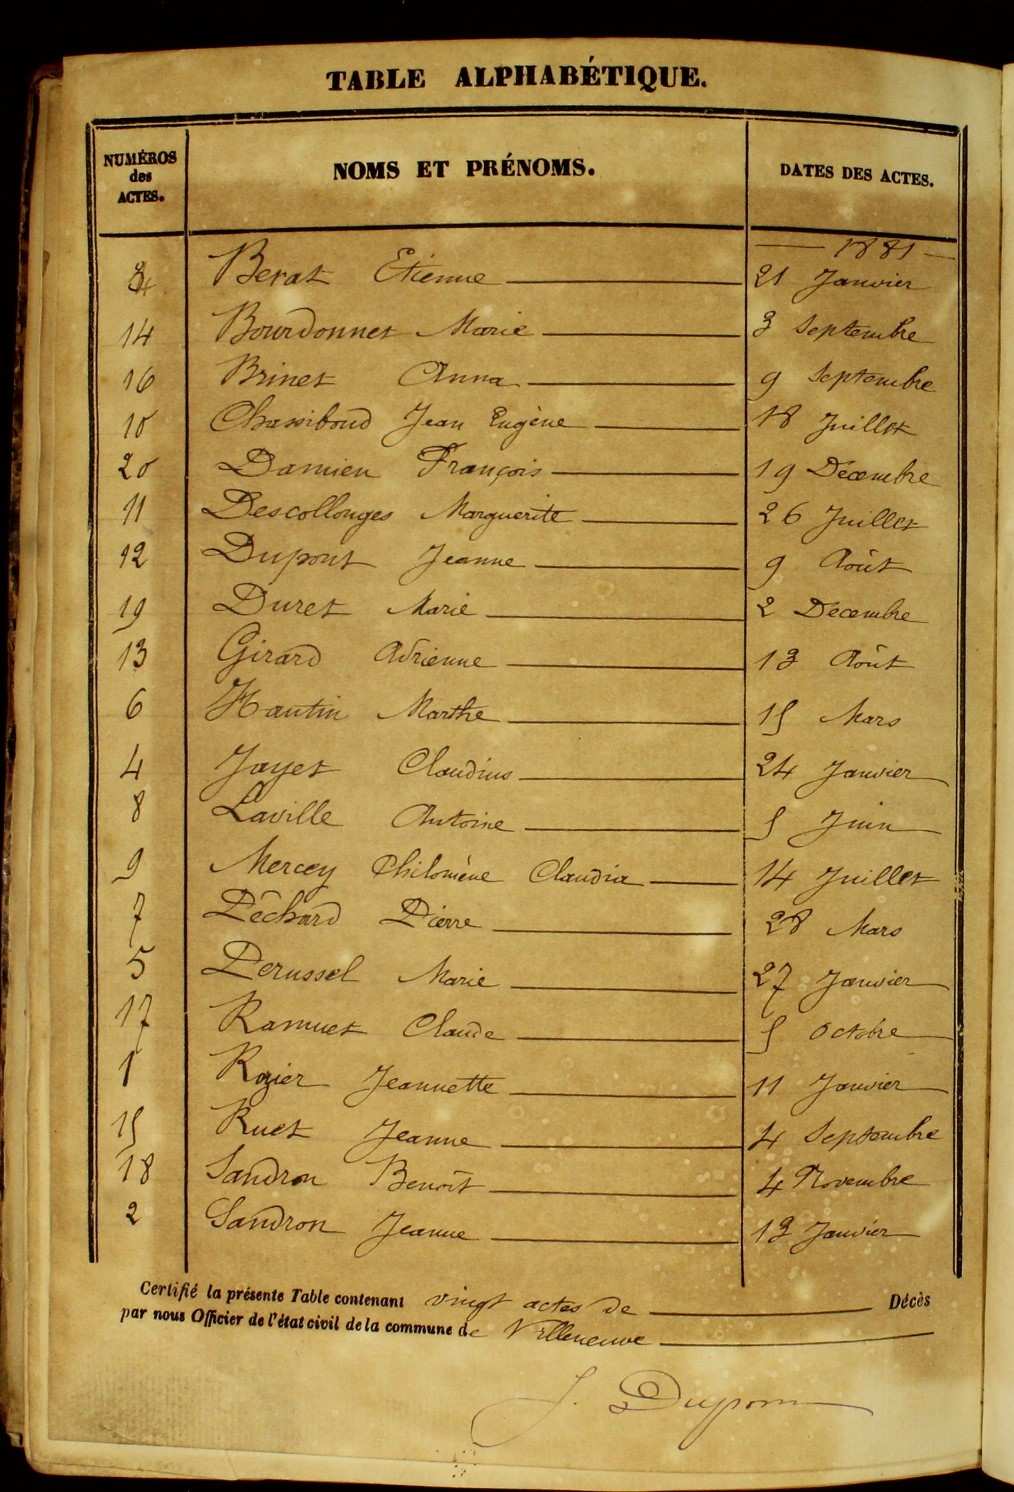 TABLE ALPHABÉTIQUE.
NUMÉROS des ACTES. NOMS ET PRÉNOMS. DATES DES ACTES.
1881
Berat Etienne 21 Janvier
14 Bourdonnet Marie 3 Septembre
16 Brinet Anna 9 Septembre
10 Chassiboud Jean Eugène 18 Juillet
20 Damien François 19 Décembre
11 Descollonges Marguerite 26 Juillet
12 Dupont Jeanne 9 Août
19 Duret Marie 2 Décembre
13 Girard Adrienne 13 Août
6 Hautin Marthe 15 Mars
4 Jayet Claudius 24 Janvier
8 Laville Antoine 5 Juin
9 Mercey Philomène Claudia 14 Juillet
7 Péchard Pierre 28 Mars
5 Perussel Marie 27 Janvier
17 Ramuet Claude 5 Octobre
1 Rozier Jeannette 11 Janvier
15 Ruet Jeanne 4 Septembre
18 Sandron Benoît 4 Novembre
2 Sandron Jeanne 13 Janvier
Certifié la présente Table contenant vingt actes de Décès
par nous Officier de l'état civil de la commune de Villeneuve
J. Dupont